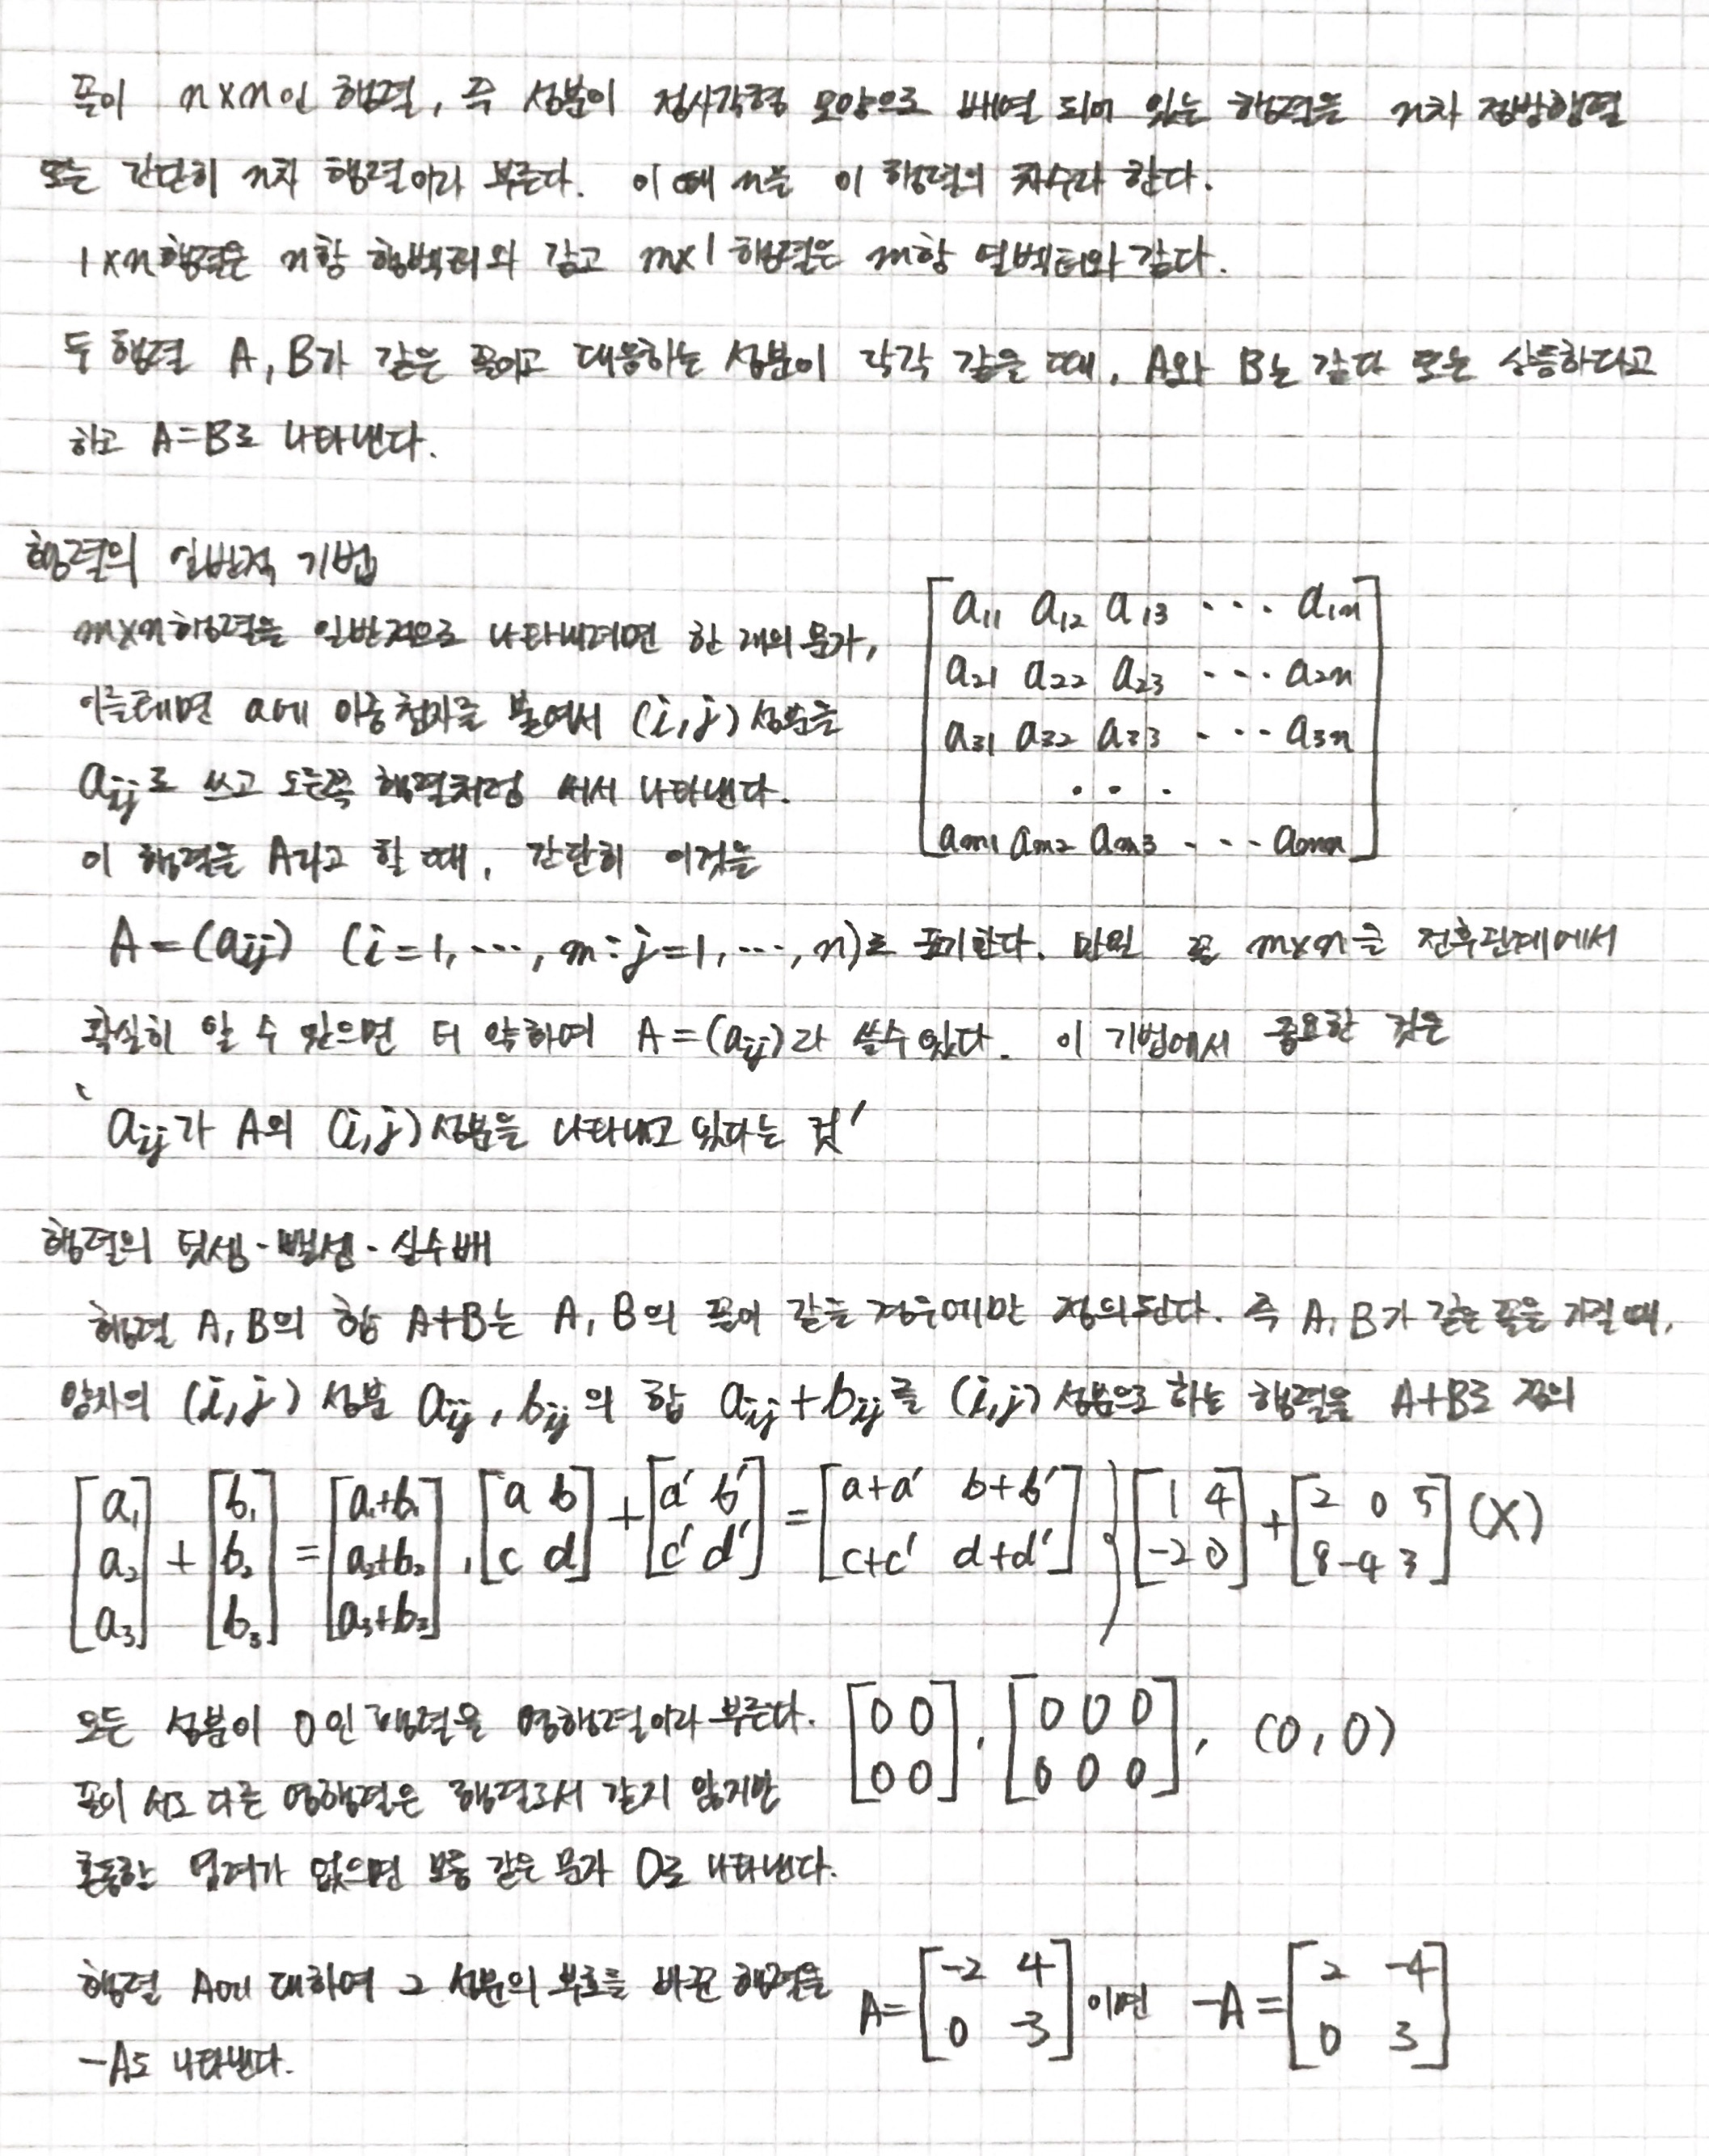 꼴이 n×n인 행렬, 즉 성분이 정사각형 모양으로 배열 되어 있는 행렬을 n차 정방행렬
또는 간단히 n차 행렬이라 부른다. 이 때 n을 이 행렬의 차수라 한다.
1×n행렬은 n항 행벡터와 같고 m×1 행렬은 m항 열벡터와 같다.
두 행렬 A, B가 같은 꼴이고 대응하는 성분이 각각 같을 때, A와 B는 같다 또는 상등하다고
하고 A=B로 나타낸다.
행렬의 일반적 기법
m×n행렬을 일반적으로 나타내려면 한 개의 문자,
이를테면 a에 이중첨자를 붙여서 (i,j) 성분을
aij로 쓰고 오른쪽 행렬처럼 써서 나타낸다.
이 행렬을 A라고 할 때, 간단히 이것을
a11 a12 a13 ··· a1n
a21 a22 a23 ··· a2n
a31 a32 a33 ··· a3n
· · ·
am1 am2 am3 ··· amn
A=(aij) (i=1, ···, m : j=1, ···, n)로 표기한다. 만일 꼴 m×n을 전후관계에서
확실히 알 수 있으면 더 약하여 A=(aij)라 쓸수있다. 이 기법에서 중요한 것은
‘aij가 A의 (i,j)성분을 나타내고 있다는 것’
행렬의 덧셈·뺄셈·실수배
행렬 A, B의 합 A+B는 A, B의 꼴이 같을 경우에만 정의된다. 즉 A, B가 같은 꼴을 가질 때,
양자의 (i,j) 성분 aij, bij의 합 aij+bij를 (i,j) 성분으로 하는 행렬을 A+B로 정의
[a1 a2 a3] + [b1 b2 b3] = [a1+b1 a2+b2 a3+b3], [a b c d] + [a' b' c' d'] = [a+a' b+b' c+c' d+d'] ) [1 4 -2 0] + [2 0 5 8 -4 3] (X)
모든 성분이 0인 행렬을 영행렬이라 부른다. [0 0 0 0], [0 0 0 0 0 0], (0, 0)
꼴이 서로 다른 영행렬은 행렬로서 같지 않지만
혼동할 염려가 없으면 보통 같은 문자 O로 나타낸다.
행렬 A에 대하여 그 성분의 부호를 바꾼 행렬을
-A로 나타낸다.
A=[-2 4 0 -3]이면 -A=[2 -4 0 3]